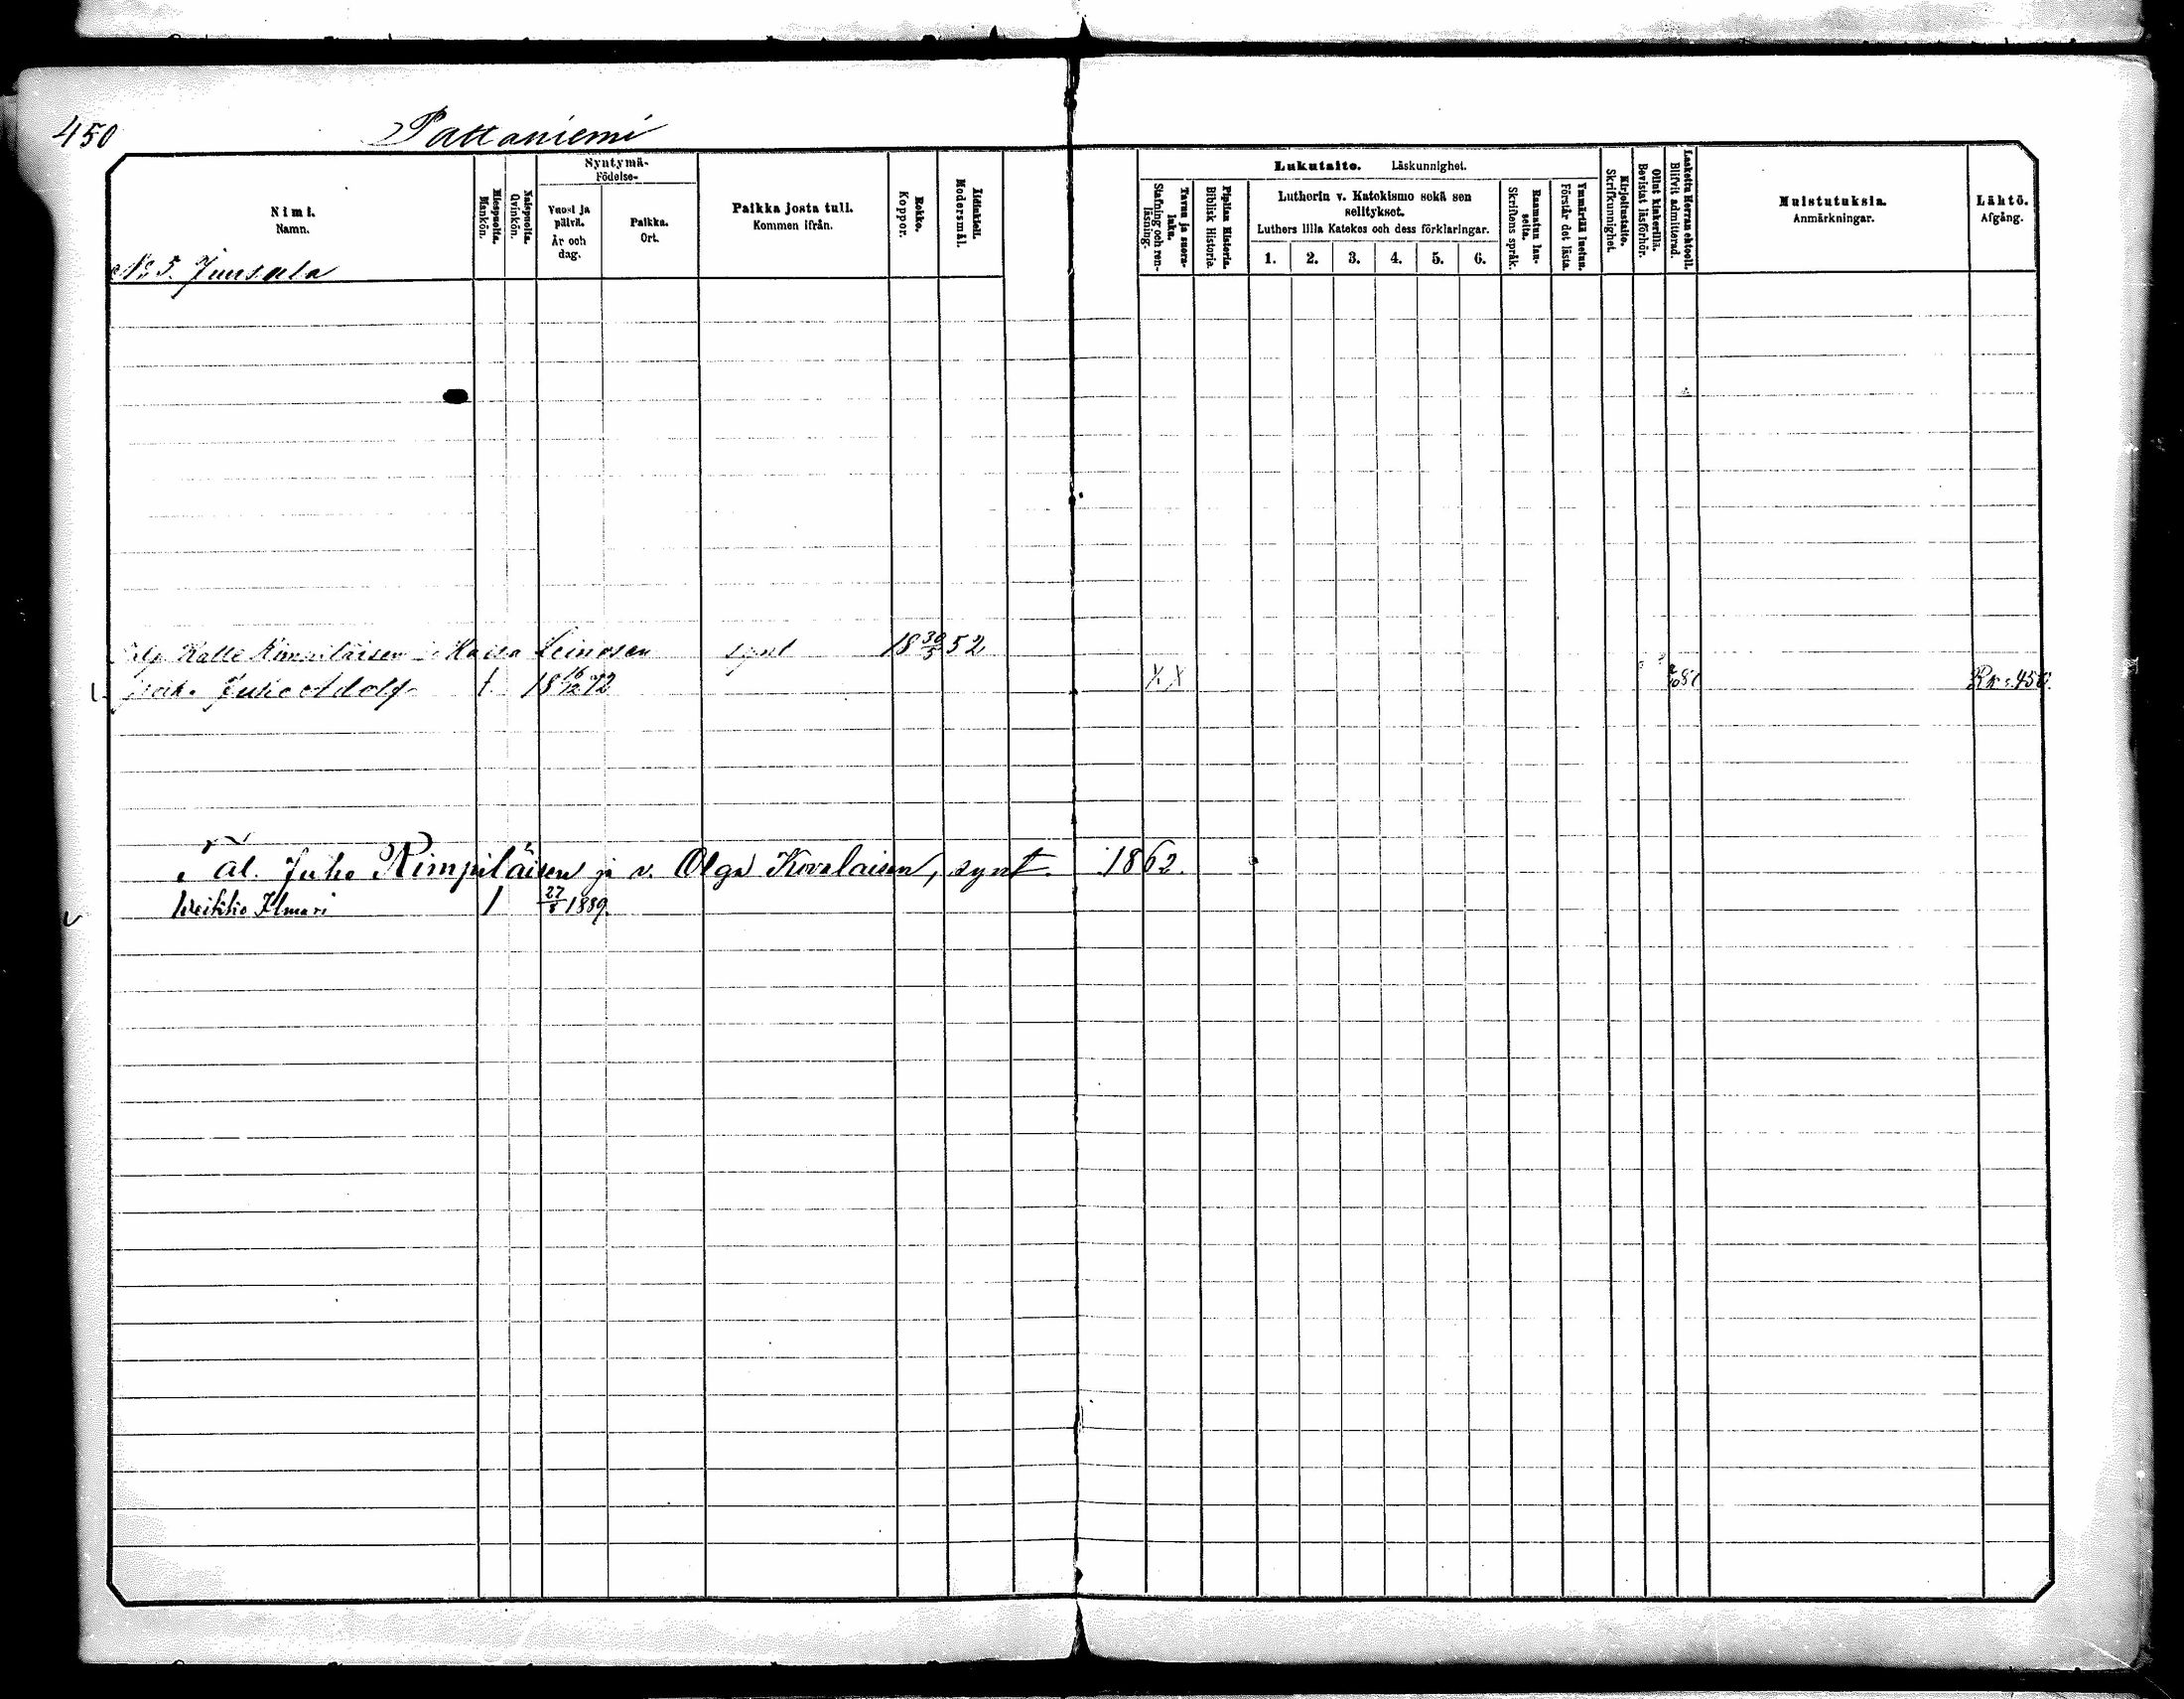 450
Pattaniemi
Nimi.
Namn.
Miespuolia.
Mankön.
Naispuolia.
Qvinkön.
Syntymä-
Födelse-
Vuosi ja
päivä.
År och
dag.
Paikka.
Ort.
Paikka josta tull.
Kommen ifrån.
Rokko.
Koppor.
Äidinkieli.
Modersmål.
Lukutaito. Läskunnighet.
Tavuu ja suora-
luku.
Stafning och ren-
läsning.
Piplian Historia.
Biblisk Historie.
Lutherin v. Katekismo sekä sen
selitykset.
Luthers lilla Katekes och dess förklaringar.
1. 2. 3. 4. 5. 6.
Raamatun lau-
seita.
Skriftens språk.
Ymmärtää luetun.
Förstår det lästa.
Kirjoitustaito.
Skrifkunnighet.
Ollut kinkerillä.
Bevistat läsförhör.
Laskettu Herran ehtooll.
Blifvit admitterad.
Muistutuksia.
Anmärkningar.
Lähtö.
Afgång.
No 5. Juusala
Kalle Rimpiläisen Maisa Leinosen synt 18 30/5 52
Juho Adolf 1 18 16/12 72 X X Rk s. 450.
al. Juho Rimpiläisen ja v. Olga Kovalaisen, synt. 1862.
Weikko Ilmari 1 27/8 1889.